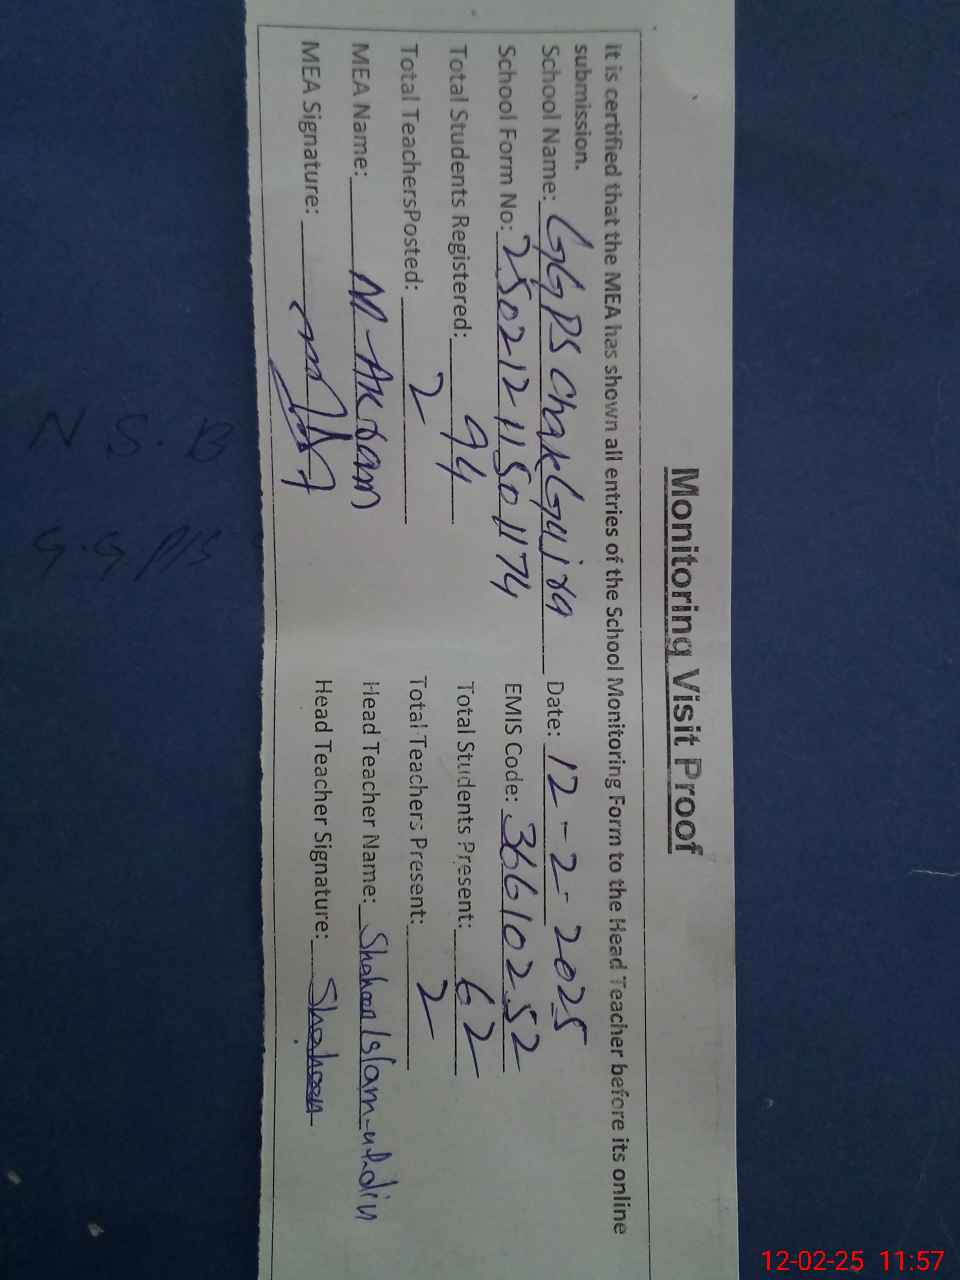 Monitoring Visit Proof
It is certified that the MEA has shown all entries of the School Monitoring Form to the Head Teacher before its online
submission.
School Name: GGPS Chak Gujra Date: 12-2-2025
School Form No: 2502121150 1174 EMIS Code: 36610252
Total Students Registered: 94 Total Students Present: 62
Total TeachersPosted: 2 Total Teachers Present: 2
MEA Name: M-Akram Head Teacher Name: Shaheen Islam-ul-din
MEA Signature: Head Teacher Signature: Shaheen
N S.B
G.G PS
12-02-25 11:57